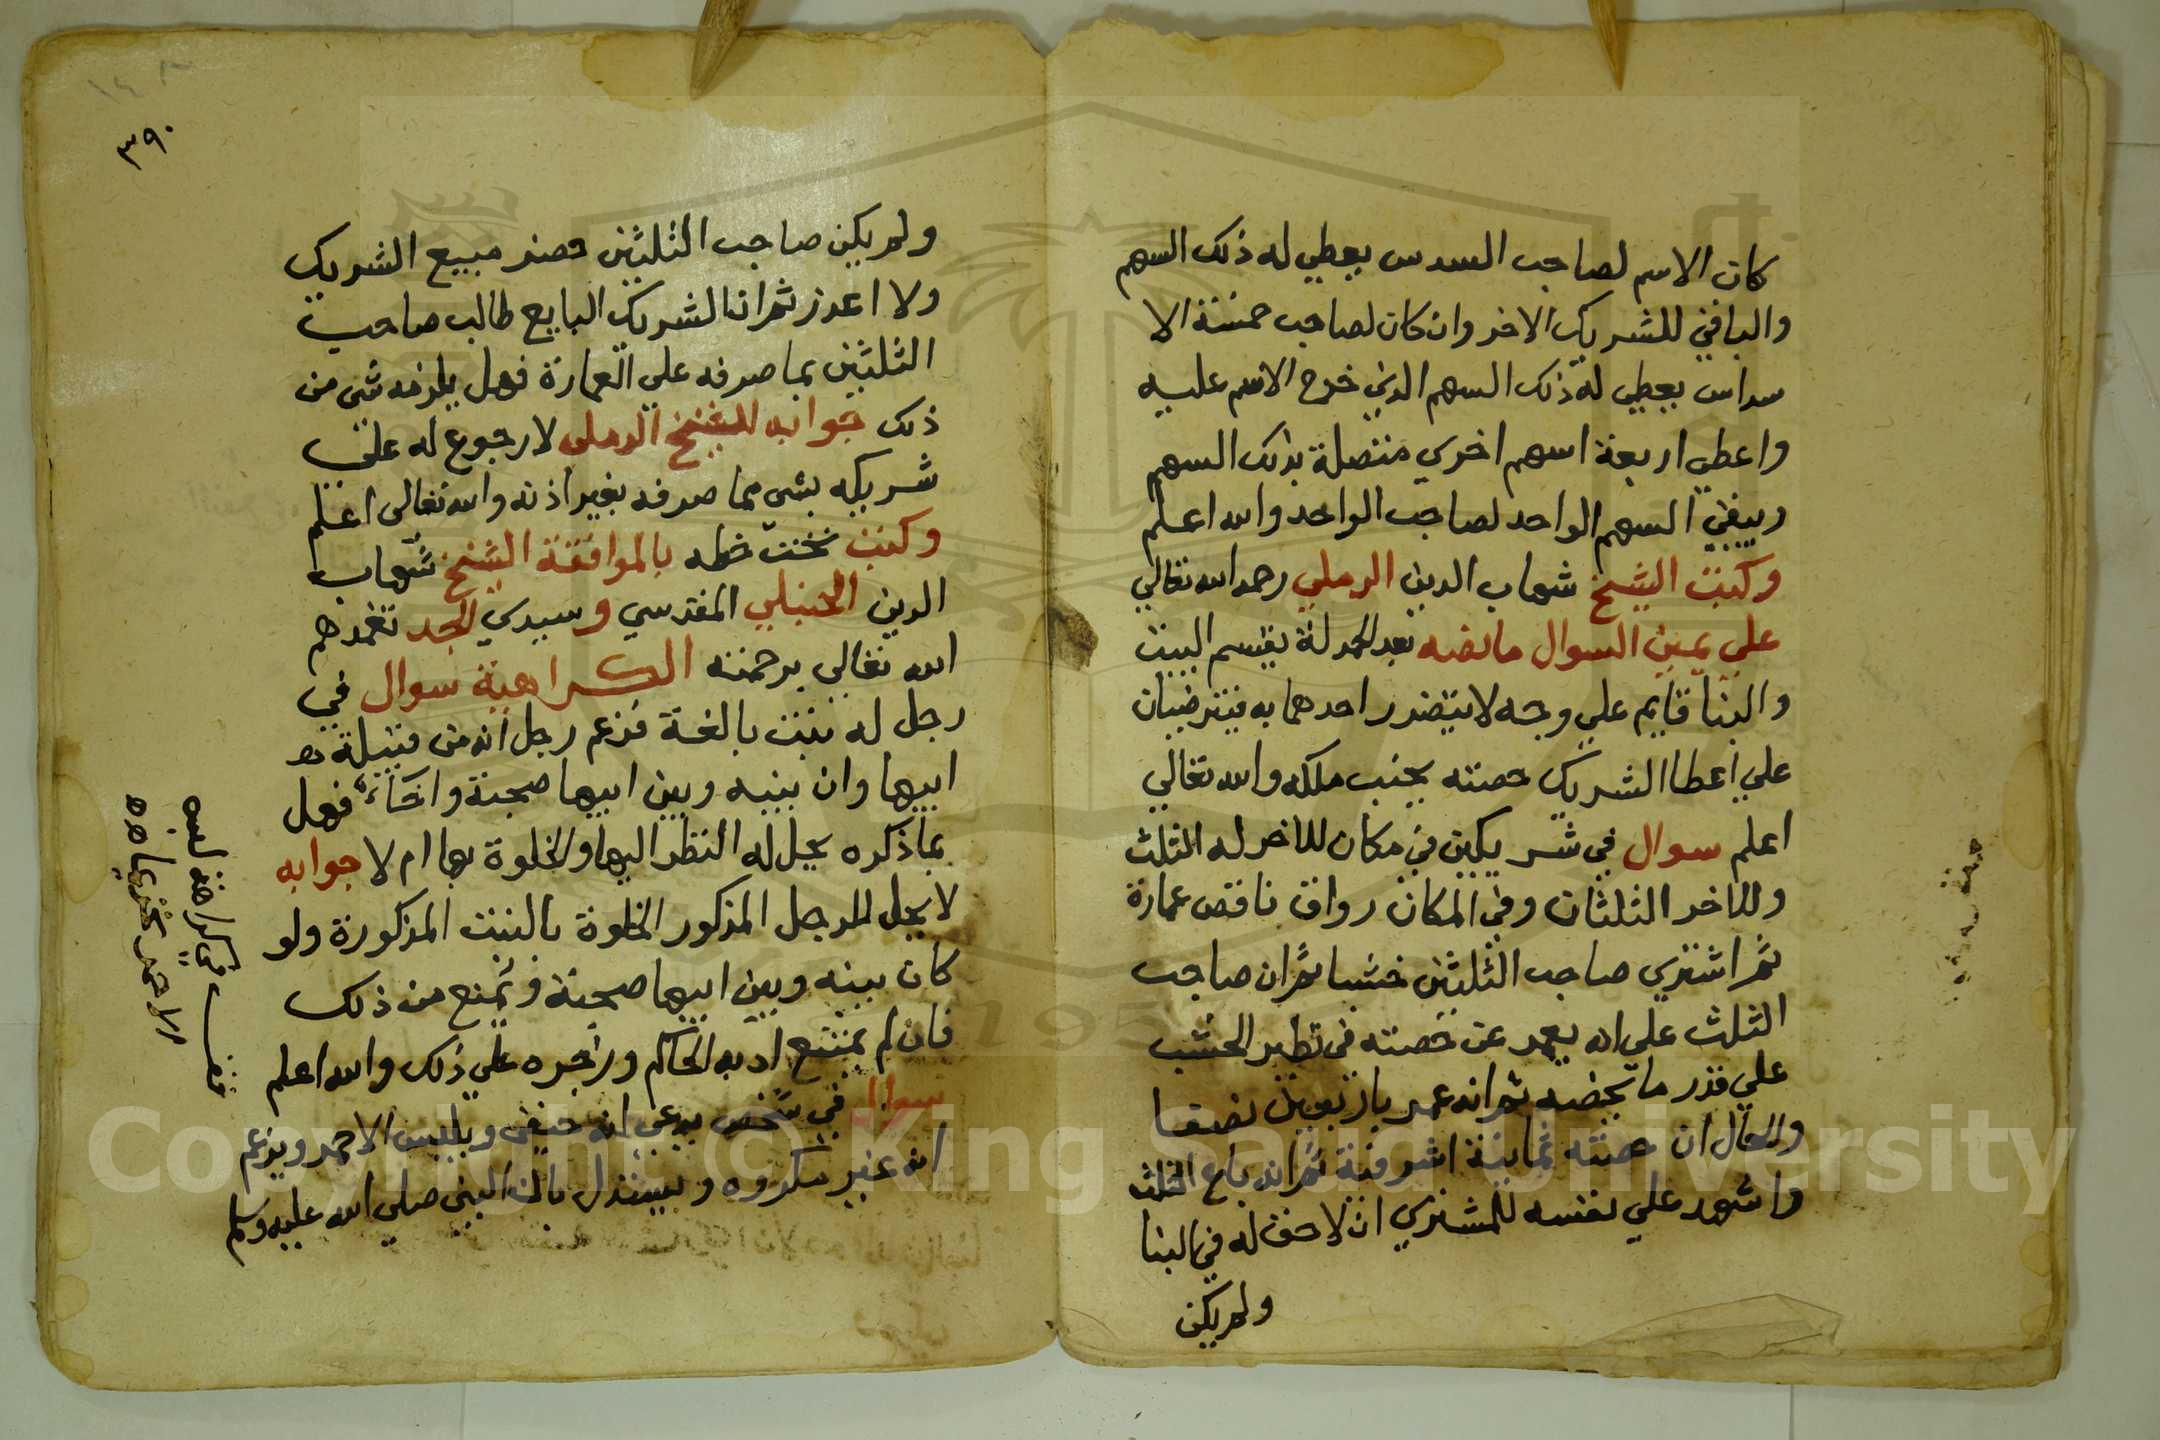 كان الاسم لصاحب السدس يعطي له ذلك السهم
والباقي للشريك الاخر وان كان لصاحب خمسة الا
سداس يعطي له ذلك السهم الذي خرج الاسم عليه
واعطي اربعة اسهم اخري متصلة بذلك السهم
ويبقي السهم الواحد لصاحب الواحد والله اعلم
وكتب الشيخ شهاب الدين الرملي رحمه الله تعالي
علي يمين السوال ما نصه بعد الحمدلة يقسم البيت
والبنا قايم علي وجه لا يتضرر احدهما به فيترضيان
علي اعطا الشريك حصته بجنب ملكه والله تعالي
اعلم سوال في شريكين في مكان للاخر له الثلث
وللاخر الثلثان وفي المكان رواق ناقص عمارة
ثم اشتري صاحب الثلثين خشبا ثم ان صاحب
الثلث علي انه يعمر عن حصته في نظير الخشب
علي قدر ما يخصه ثم انه عمر باربعين نصفا
والحال ان حصته ثمانية اشرفية ثم انه باع الثلث
واشهد علي نفسه للمشتري ان لا حق له في البنا
ولم يكن
٣٩٠
ولم يكن صاحب الثلثين حضر مبيع الشريك
ولا اعذر ثم ان الشريك البايع طالب صاحب
الثلثين بما صرفه علي العمارة فهل يلزمه شي من
ذلك جوابه للشيخ الرملي لا رجوع له علي
شريكه بشي مما صرفه بغير اذنه والله تعالي اعلم
وكتب تحت خطه بالموافقة الشيخ شهاب
الدين الحنبلي المقدسي وسيدي الجد تغمدهم
الله تعالي برحمته الكراهية سوال في
رجل له بنت بالغة فزعم رجل انه من قبيلة
ابيها وان بينه وبين ابيها صحبة واخاء فهل
بما ذكره يحل له النظر اليها والخلوة بها ام لا جوابه
لا يحل للرجل المذكور الخلوة بالبنت المذكورة ولو
كان بينه وبين ابيها صحبة ويمنع من ذلك
فان لم يمتنع ادبه الحاكم وزجره علي ذلك والله اعلم
سوال في شخص يدعي انه حنيفي ويلبس الاحمر ويزعم
انه غير مكروه ويستدل بان النبي صلي الله عليه وسلم